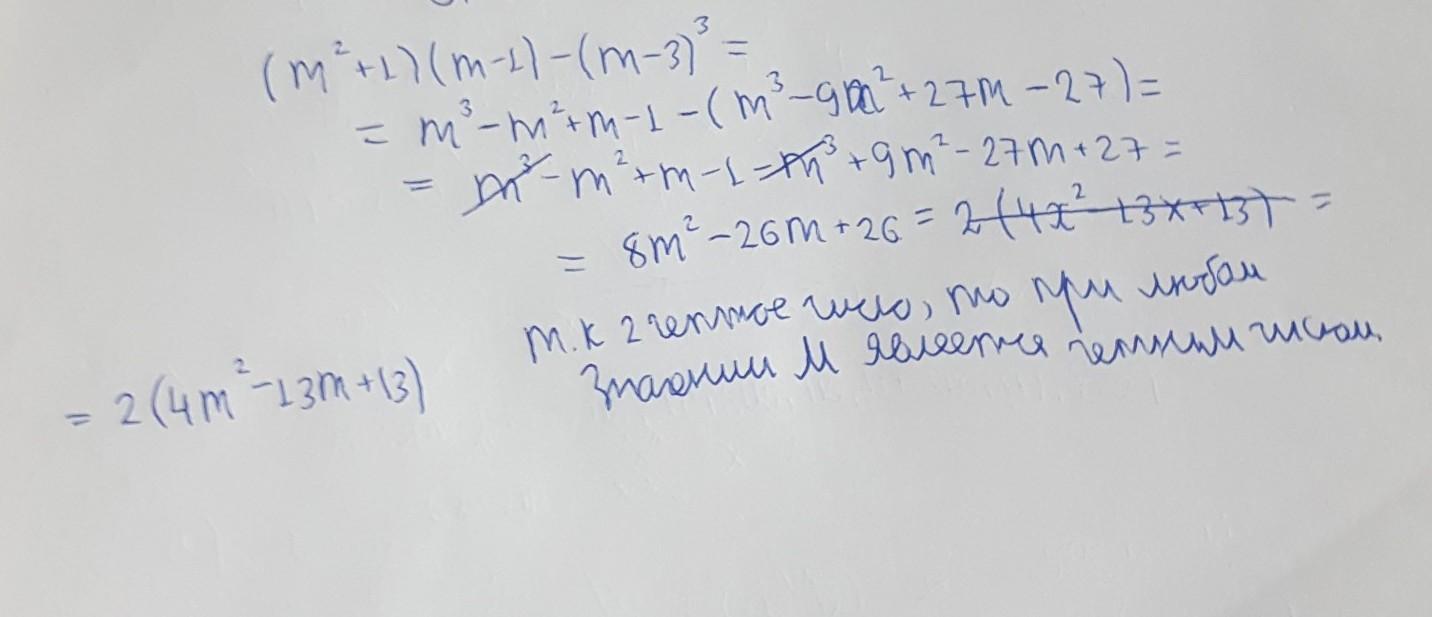 (m²+1)(m-1)-(m-3)³=
= m³-m²+m-1-(m³-9m²+27m-27)=
= m³-m²+m-1-m³+9m²-27m+27=
= 8m²-26m+26=2(4x²-13x+13)=
= 2(4m²-13m+13)
т.к 2 четное число, то при любом
значении м является четным числом.